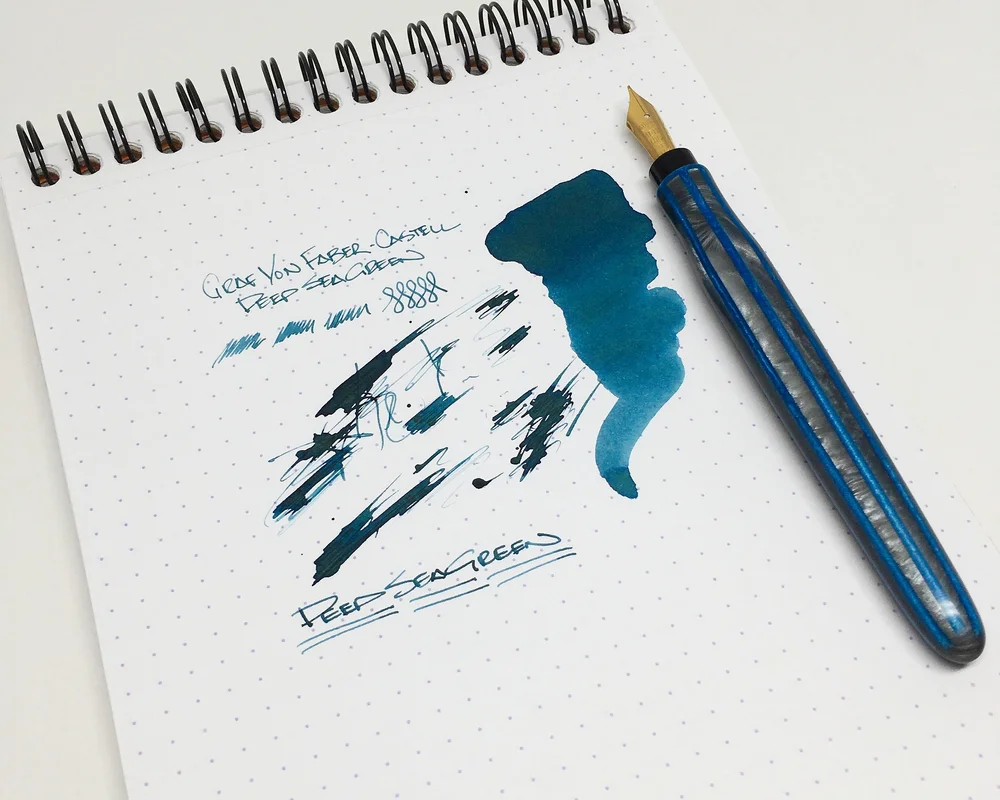 Graf Von Faber-Castell
Deep Sea Green
Deep Sea Green